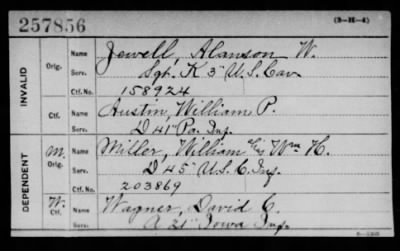 257856
(3-H-4)
INVALID
Orig.
Name Jewell, Alanson W.
Serv. Sgt. K 3" U.S. Cav.
Ctf. No. 158924
Ctf.
Name Austin, William P.
Serv. D 41" Pa. Inf.
DEPENDENT
M. Orig.
Name Miller, William Wm H.
Serv. D 45" U.S.C. Inf.
Ctf. No. 203869
W. Ctf.
Name Wagner, David C.
Serv. A 21" Iowa Inf.